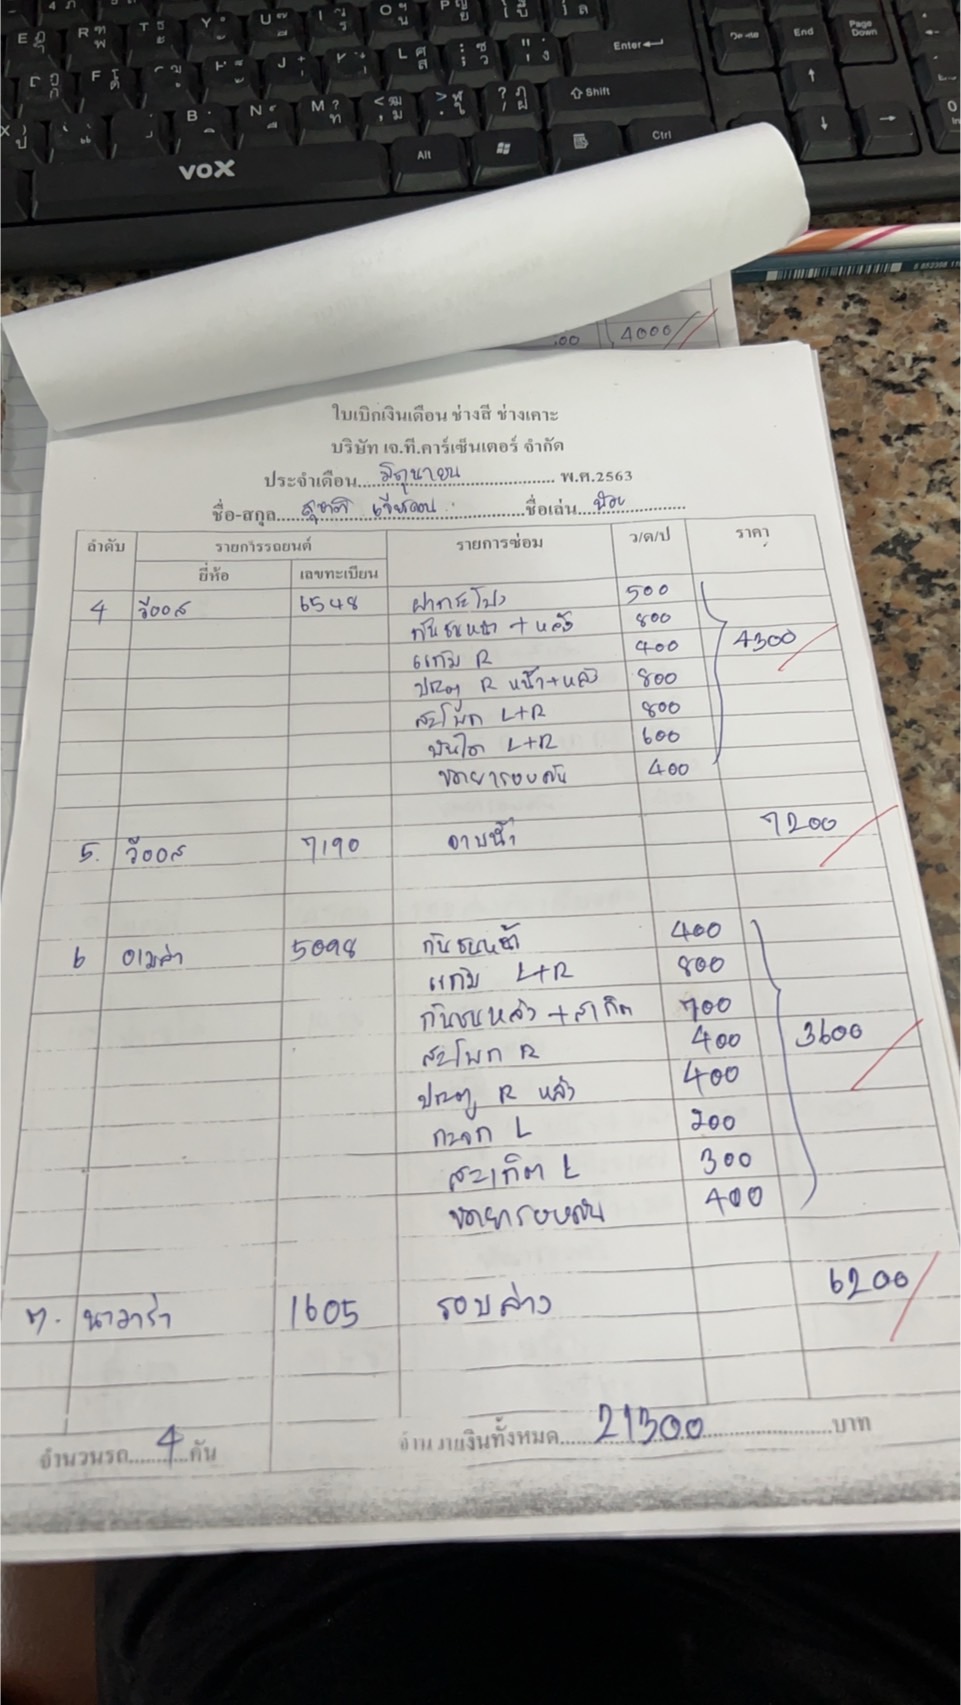 VOX
Alt
Ctrl
Shift
Enter
End
Page Down
.00 4000
ใบเบิกเงินเดือน ช่างสี ช่างเคาะ
บริษัท เจ.ที.คาร์เซ็นเตอร์ จำกัด
ประจำเดือน....มิถุนายน.... พ.ศ.2563
ชื่อ-สกุล........ชื่อเล่น....น้อย....
ลำดับ รายการรถยนต์ รายการซ่อม ว/ด/ป ราคา
ยี่ห้อ เลขทะเบียน
4 วีออส 6548 ฝากระโปง 500
กันชนหน้า + หลัง 800
แก้ม R 400 4300
ประตู R หน้า+หลัง 800
สะโพก L+R 800
บันได L+R 600
ขัดยารอบคัน 400
5. วีออส 7190 อาบน้ำ 7200
6 อเมล่า 5098 กันชนหน้า 400
แก้ม L+R 800
กันชนหลัง + สเกิต 700
สะโพก R 400 3600
ประตู R หลัง 400
กระจก L 200
สะเกิต L 300
ขัดยารอบคัน 400
7. นาวาร่า 1605 รอบล่าง 6200
จำนวนรถ....4....คัน จำนวนเงินทั้งหมด....21300....บาท